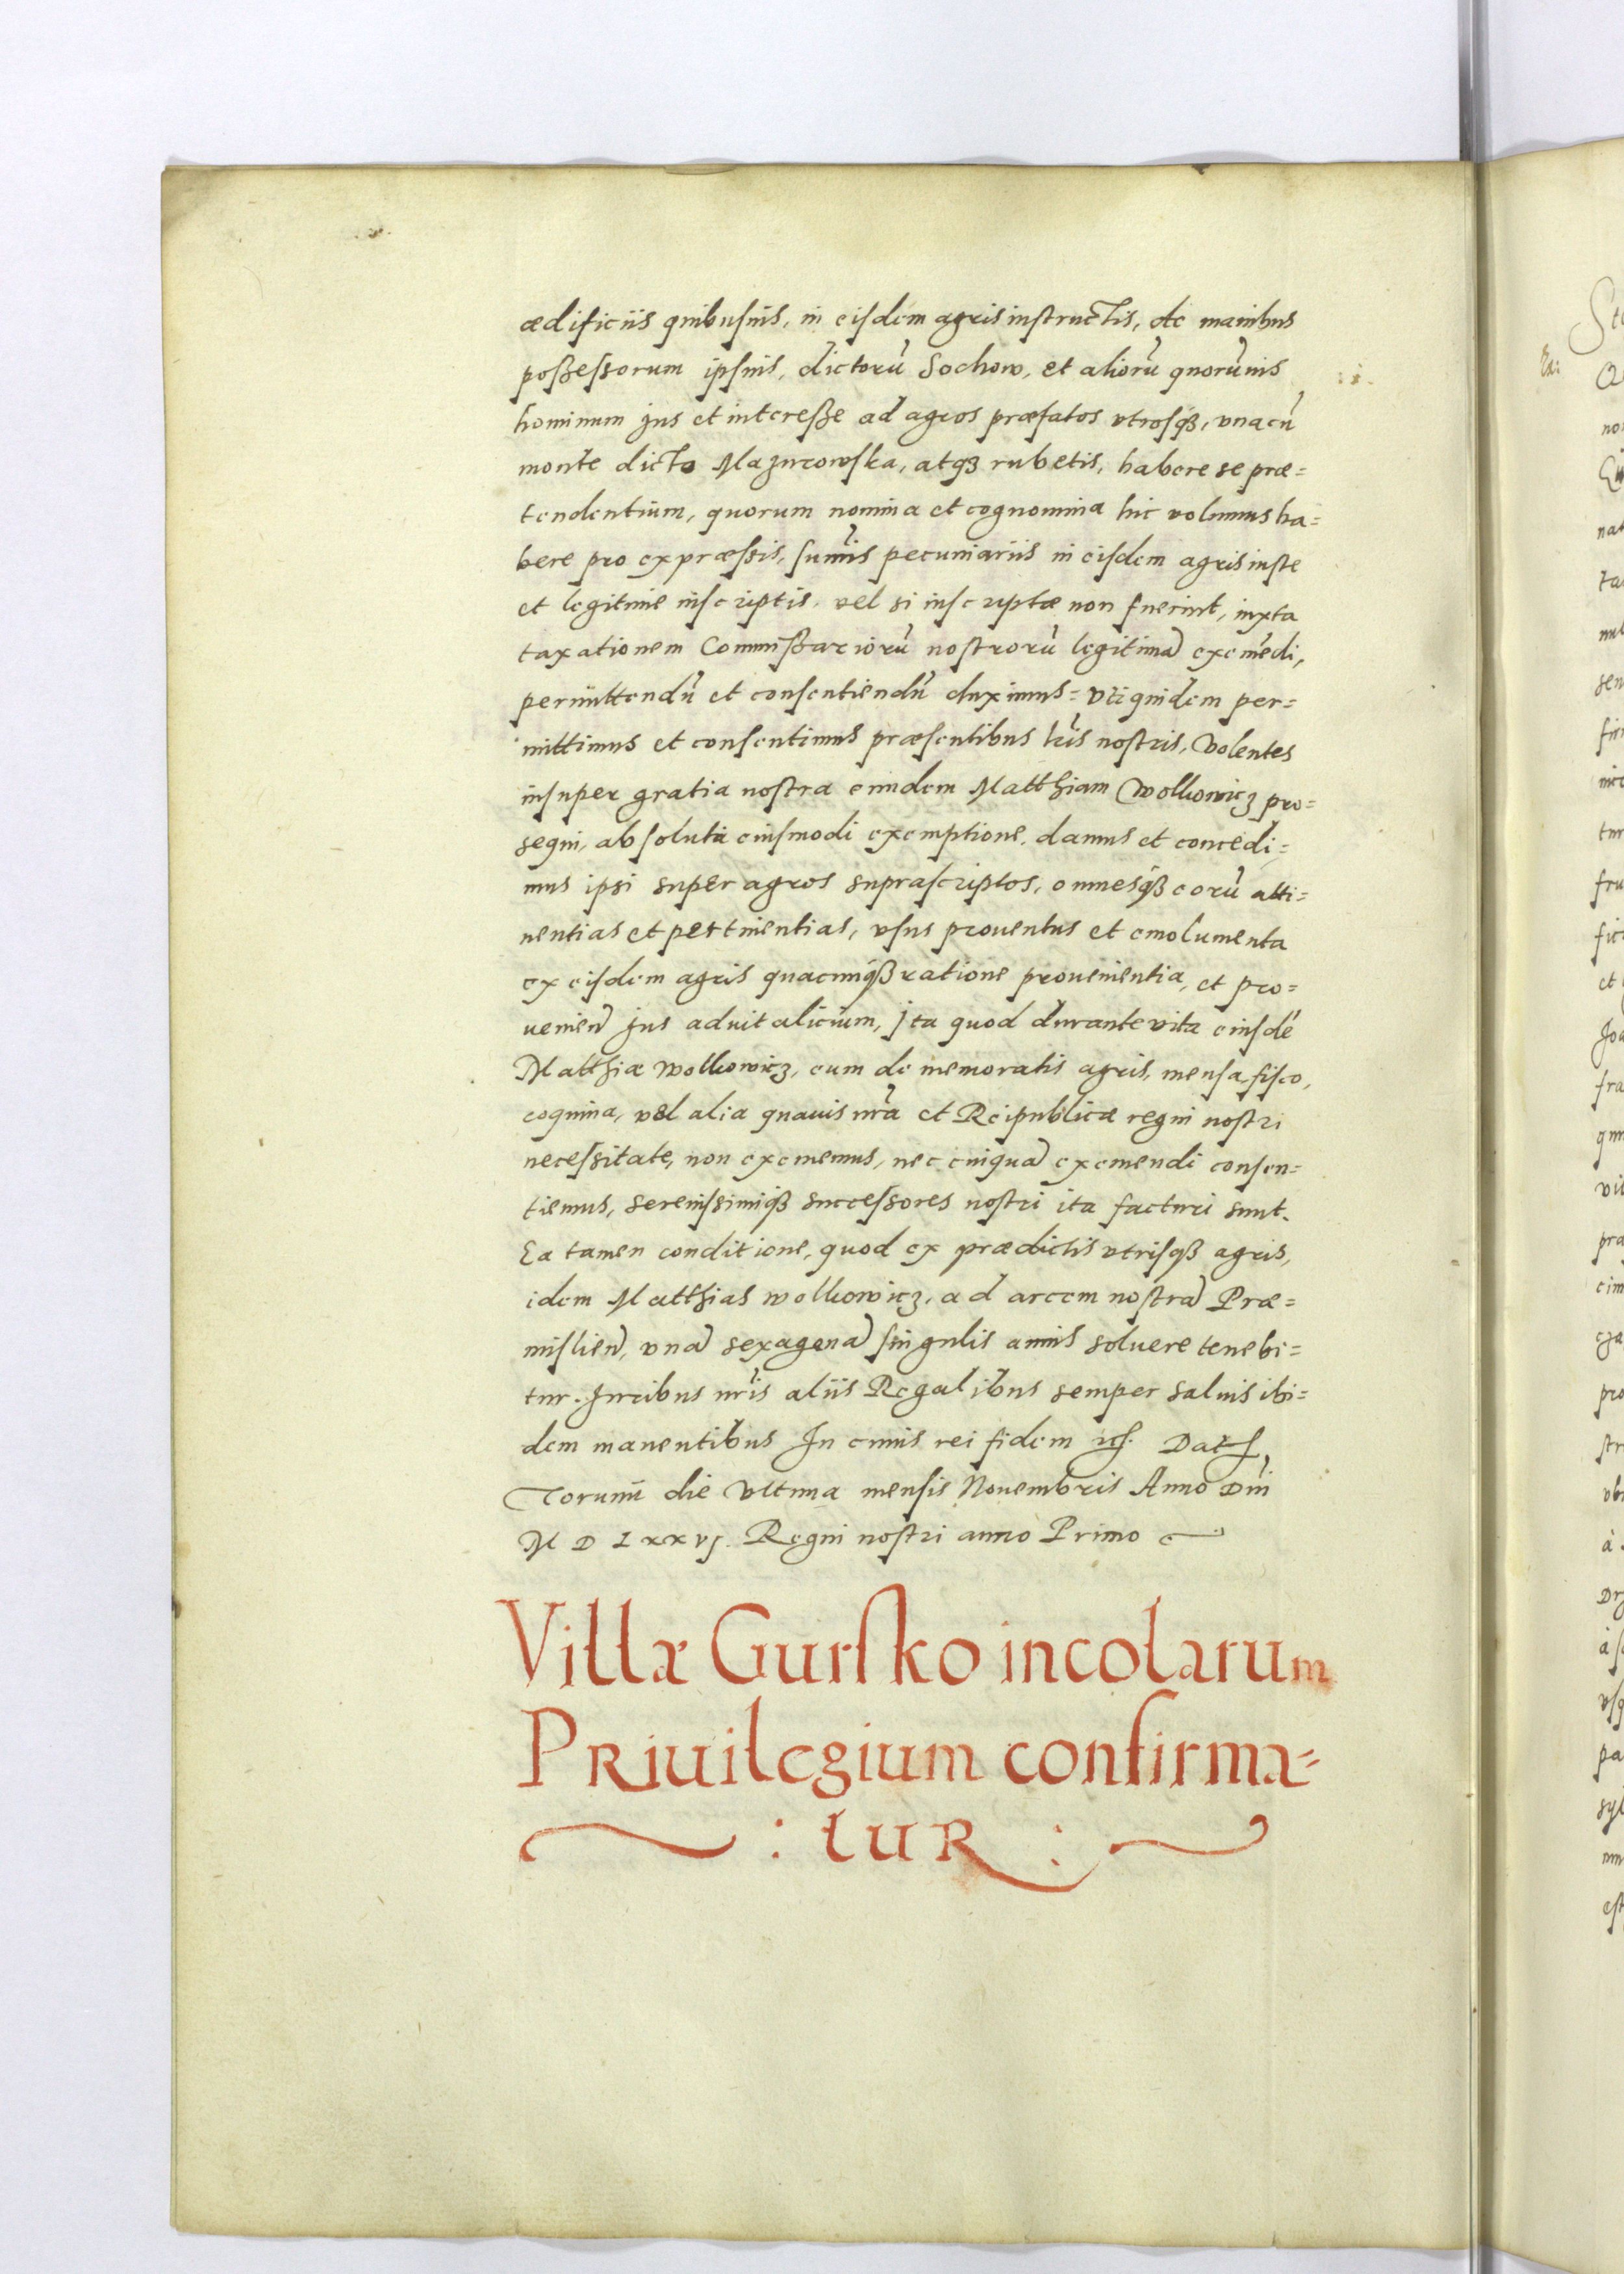 ædificiis quibusuis, in eisdem agris instructis, de manibus
possessorum ipsius, dictorũ Sochow, et aliorũ quorũuis
hominum jus et interesse ad agros præfatos vtrosqꝫ, vna cũ
monte dicto Mazurowska, atqꝫ rubetis, habere se præ=
tendentium, quorum nomina et cognomina hic volumus ha=
bere pro expræssis, sum̃is pecuniariis in eisdem agris iuste
et legitime inscriptis, vel si inscriptæ non fuerint, iuxta
taxationem Commissariorũ nostrorũ legitimã eximẽdi,
permittendũ et consentiendũ duximus= vti quidem per=
mittimus et consentimus præsentibus lr̃is nostris, Volentes
insuper gratia nostra eundem Matthiam Wolkowicz pro=
sequi, absoluta eiusmodi exemptione, damus et concedi=
mus ipsi super agros suprascriptos, omnesqꝫ eorũ atti=
nentias et pertinentias, vsus prouentus et emolumenta
ex eisdem agris quacunqꝫ ratione prouenientia, et pro=
ueniend jus aduitalicium, Jta quod durante vita eiusdẽ
Matthiæ Wolkowicz, eum de memoratis agris, mensa, fisco,
coquina, vel alia quauis nr̃a et Reipublicæ regni nostri
necessitate, non eximemus, nec cuiquã eximendi consen=
tiemus, serenissimiqꝫ successores nostri ita facturi sunt.
Ea tamen conditione, quod ex prædictis vtrisqꝫ agris,
idem Matthias wolkowicz, ad arcem nostrã Præ=
mislień, vnã sexagenã singulis annis soluere tenebi=
tur. Juribus nr̃is aliis Regalibus semper saluis ibi=
dem manentibus In cuius rei fidem Dat
Torunii die Vltima mensis Nouembris Anno Dñi
M D Lxxvj. Regni nostri anno Primo
Villæ Gursko incolarum
PRiuilegium confirma=
: tuR :